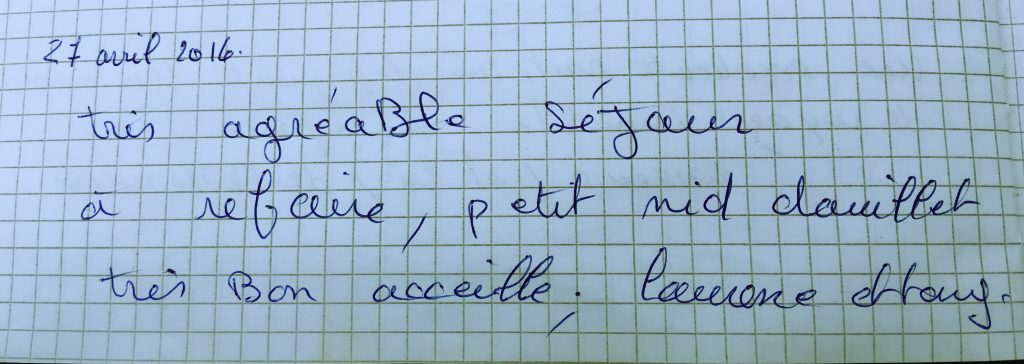 27 avril 2016.
très agréaBle séjour
à refaire, petit nid douillet
très Bon acceille.